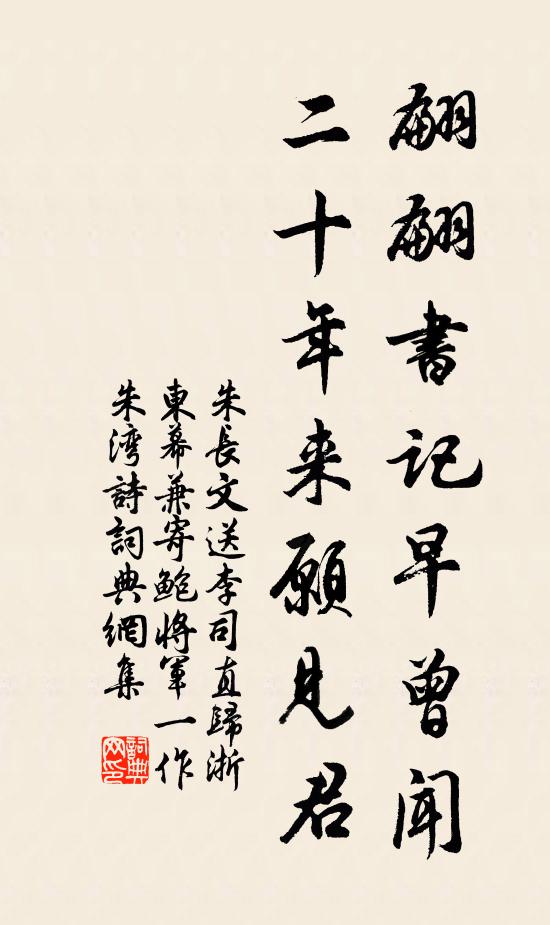 翩翩書記早曾聞
二十年来願見君
朱長文送李司直歸浙
東幕兼寄鮑將軍一作
朱湾詩詞典網集
詞典
网印